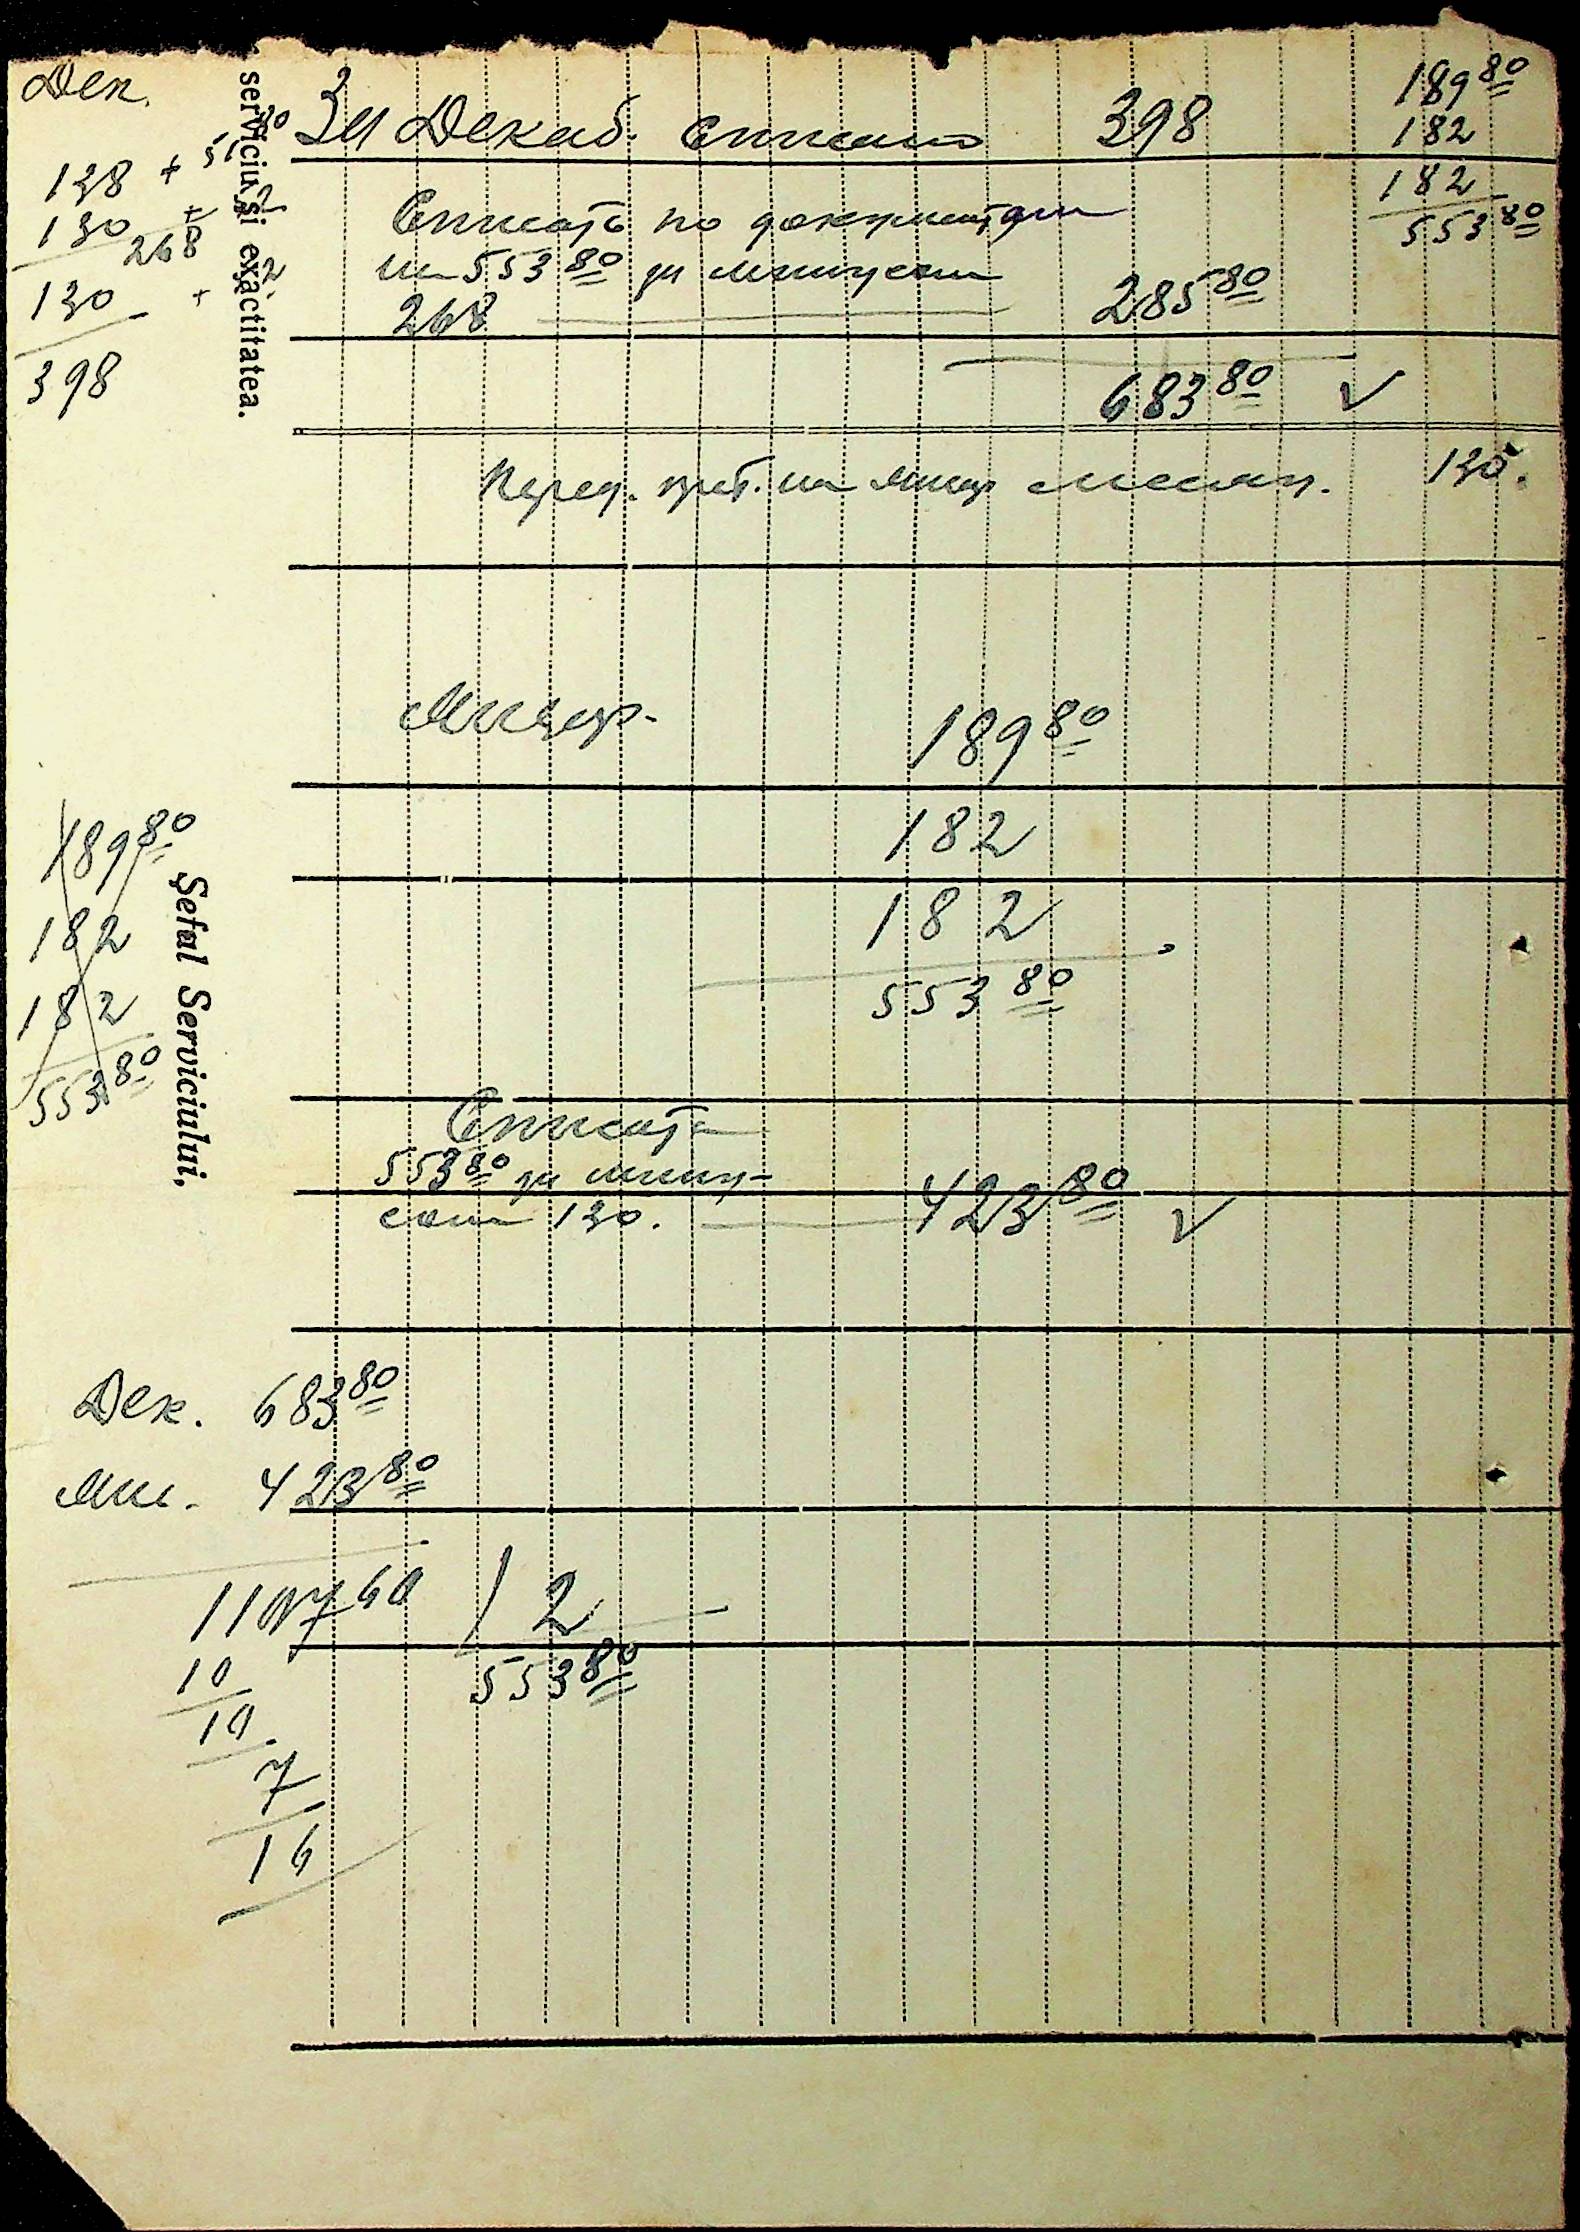 Дек.
138 +
130 +
268
130 +
398
serviciu și exactitatea.
За Декаб. списано 398
189 80
182
182
553 80
Списать по документам
на 553 80 за минусом
268 285 80
683 80 ✓
на Янвр месяц. 130.
Янвр.
189 80
182
182
553 80
189 80
182
182
553 80
Șeful Serviciului,
Списать
553 80 за мину-
сом 130. 423 80 ✓
Дек. 683 80
Янв. 423 80
1107 60 2
10 553 80
10
7
16